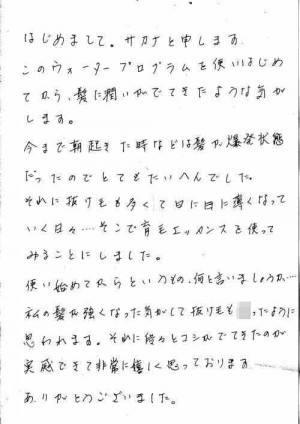 はじめまして。サカナと申します
このウォータープログラムを使いはじめ
てから、髪に潤いがでてきたような気が
します。
今まで朝起きた時などは髪が爆発状態
だったのでとてもたいへんでした。
それに抜け毛も多くて日に日に薄くなって
いく日々…そこで育毛エッセンスを使って
みることにしました。
使い始めてからというもの、何と言いましょうか…
私の髪が強くなった気がして抜け毛も ったように
思われます。それに段々とコシがでてきたのが
実感できて非常に嬉しく思っております
ありがとうございました。